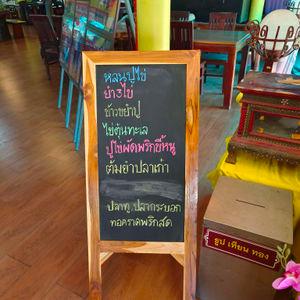 หลนปูไข่
ยำ3ไข่
ข้าวยำปู
ไข่ตุ๋นทะเล
ปูไข่ผัดพริกขี้หนู
ต้มยำปลาเก๋า
ปลาทู,ปลากระบอก
ทอดราดพริกสด
ธูป เทียน ทอง